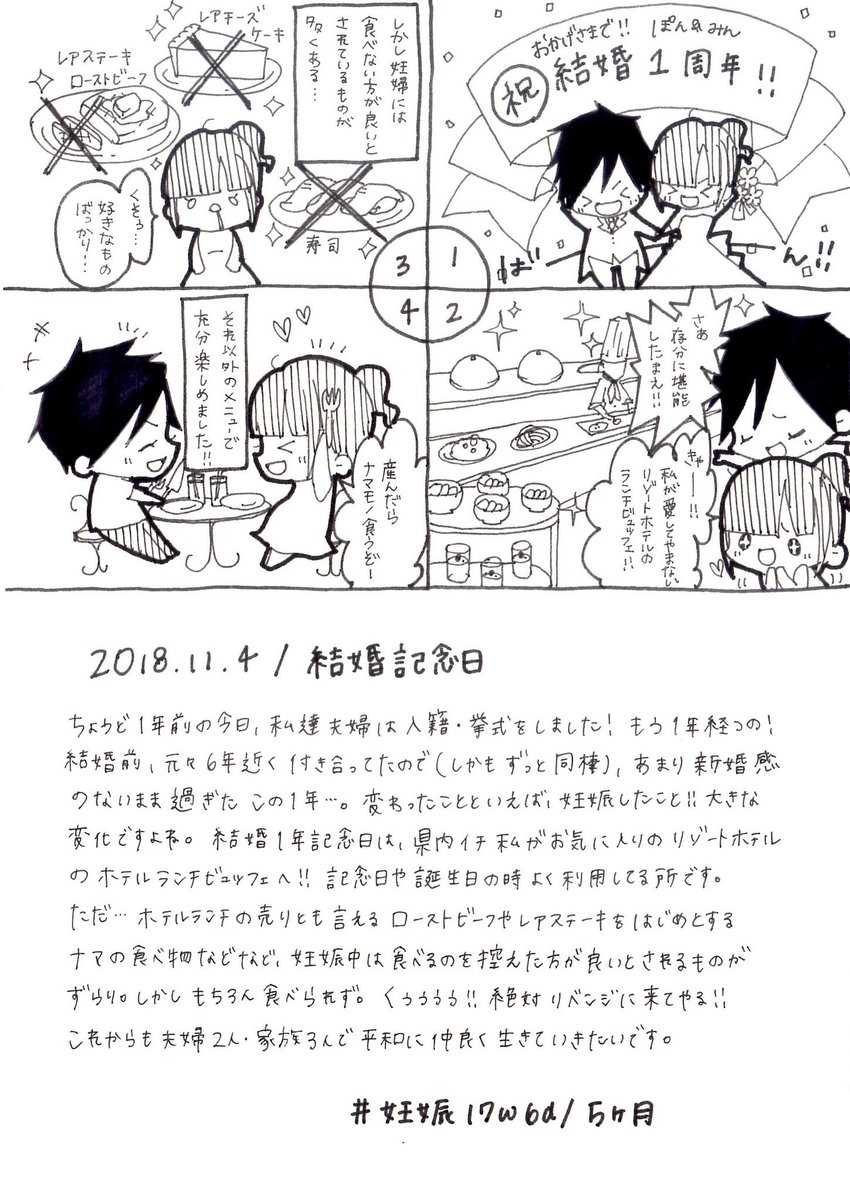 おかげさまで!!
ぽん&みん
祝 結婚1周年!!
ば
ん!!
1
2
3
4
さぁ
存分に堪能
したまえ!!
きゃー!!
私が愛してやまない
リゾートホテルの
ランチビュッフェ!!
しかし妊婦には
食べない方が良いと
されているものが
多くある…
レアチーズ
ケーキ
レアステーキ
ローストビーフ
寿司
くそぅ…
好きなもの
ばっかり…
それ以外のメニューで
充分楽しめました!!
産んだら
ナマモノ食うぞー
2018.11.4/結婚記念日
ちょうど1年前の今日、私達夫婦は入籍・挙式をしました! もう1年経つの!
結婚前、元々6年近く付き合ってたので(しかもずっと同棲)、あまり新婚感
のないまま過ぎたこの1年…。変わったことといえば、妊娠したこと!!大きな
変化ですよね。結婚1年記念日は、県内イチ私がお気に入りのリゾートホテル
のホテルランチビュッフェへ!! 記念日や誕生日の時よく利用してる所です。
ただ…ホテルランチの売りとも言えるローストビーフやレアステーキをはじめとする
ナマの食べ物などなど、妊娠中は食べるのを控えた方が良いとされるものが
ずらり。しかしもちろん食べられず。くぅぅぅぅ!! 絶対リベンジに来てやる!!
これからも夫婦2人・家族3人で平和に仲良く生きていきたいです。
#妊娠17w6d/5ヶ月